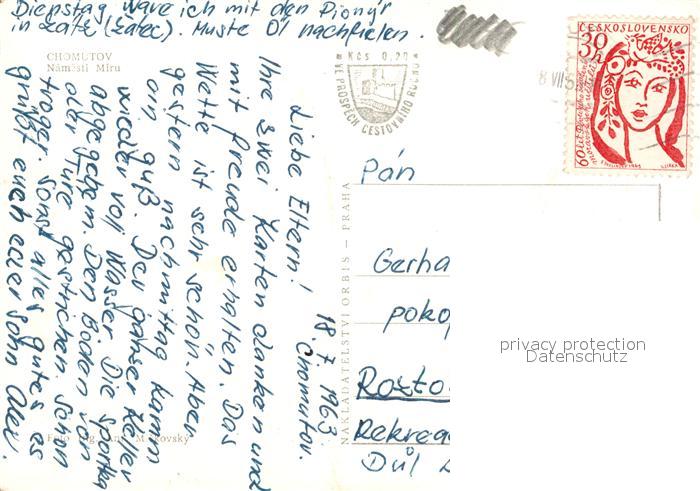 Dienstag wäre ich mit den Pionýr
in žatě (žatec). Muste Öl nachfielen.
CHOMUTOV
Náměstí Míru
Chomutov.
18. 7. 1963
Liebe Eltern!
Ihre zwei Karten danken und
mit freude erhalten. Das
Wette ist sehr schön. Aber
gestern nachmittag kamm
ein guß. Der ganser Keller
wieder voll Wasser. Die
abgegebem. Den Boden von
die Ture gestrichen. Schon
troger. Sonst alles gutes es
grüßt euch euer Sohn
Foto Ing.
NAKLADATELSTVÍ ORBIS — PRAHA
Kčs 0,20
VE PROSPĚCH CESTOVNÍHO RUCHU
8 VII
ČESKOSLOVENSKO
30h
60 let
Pán
Gerha
pokoj
Rozto
Rekrea
Důl
privacy protection
Datenschutz